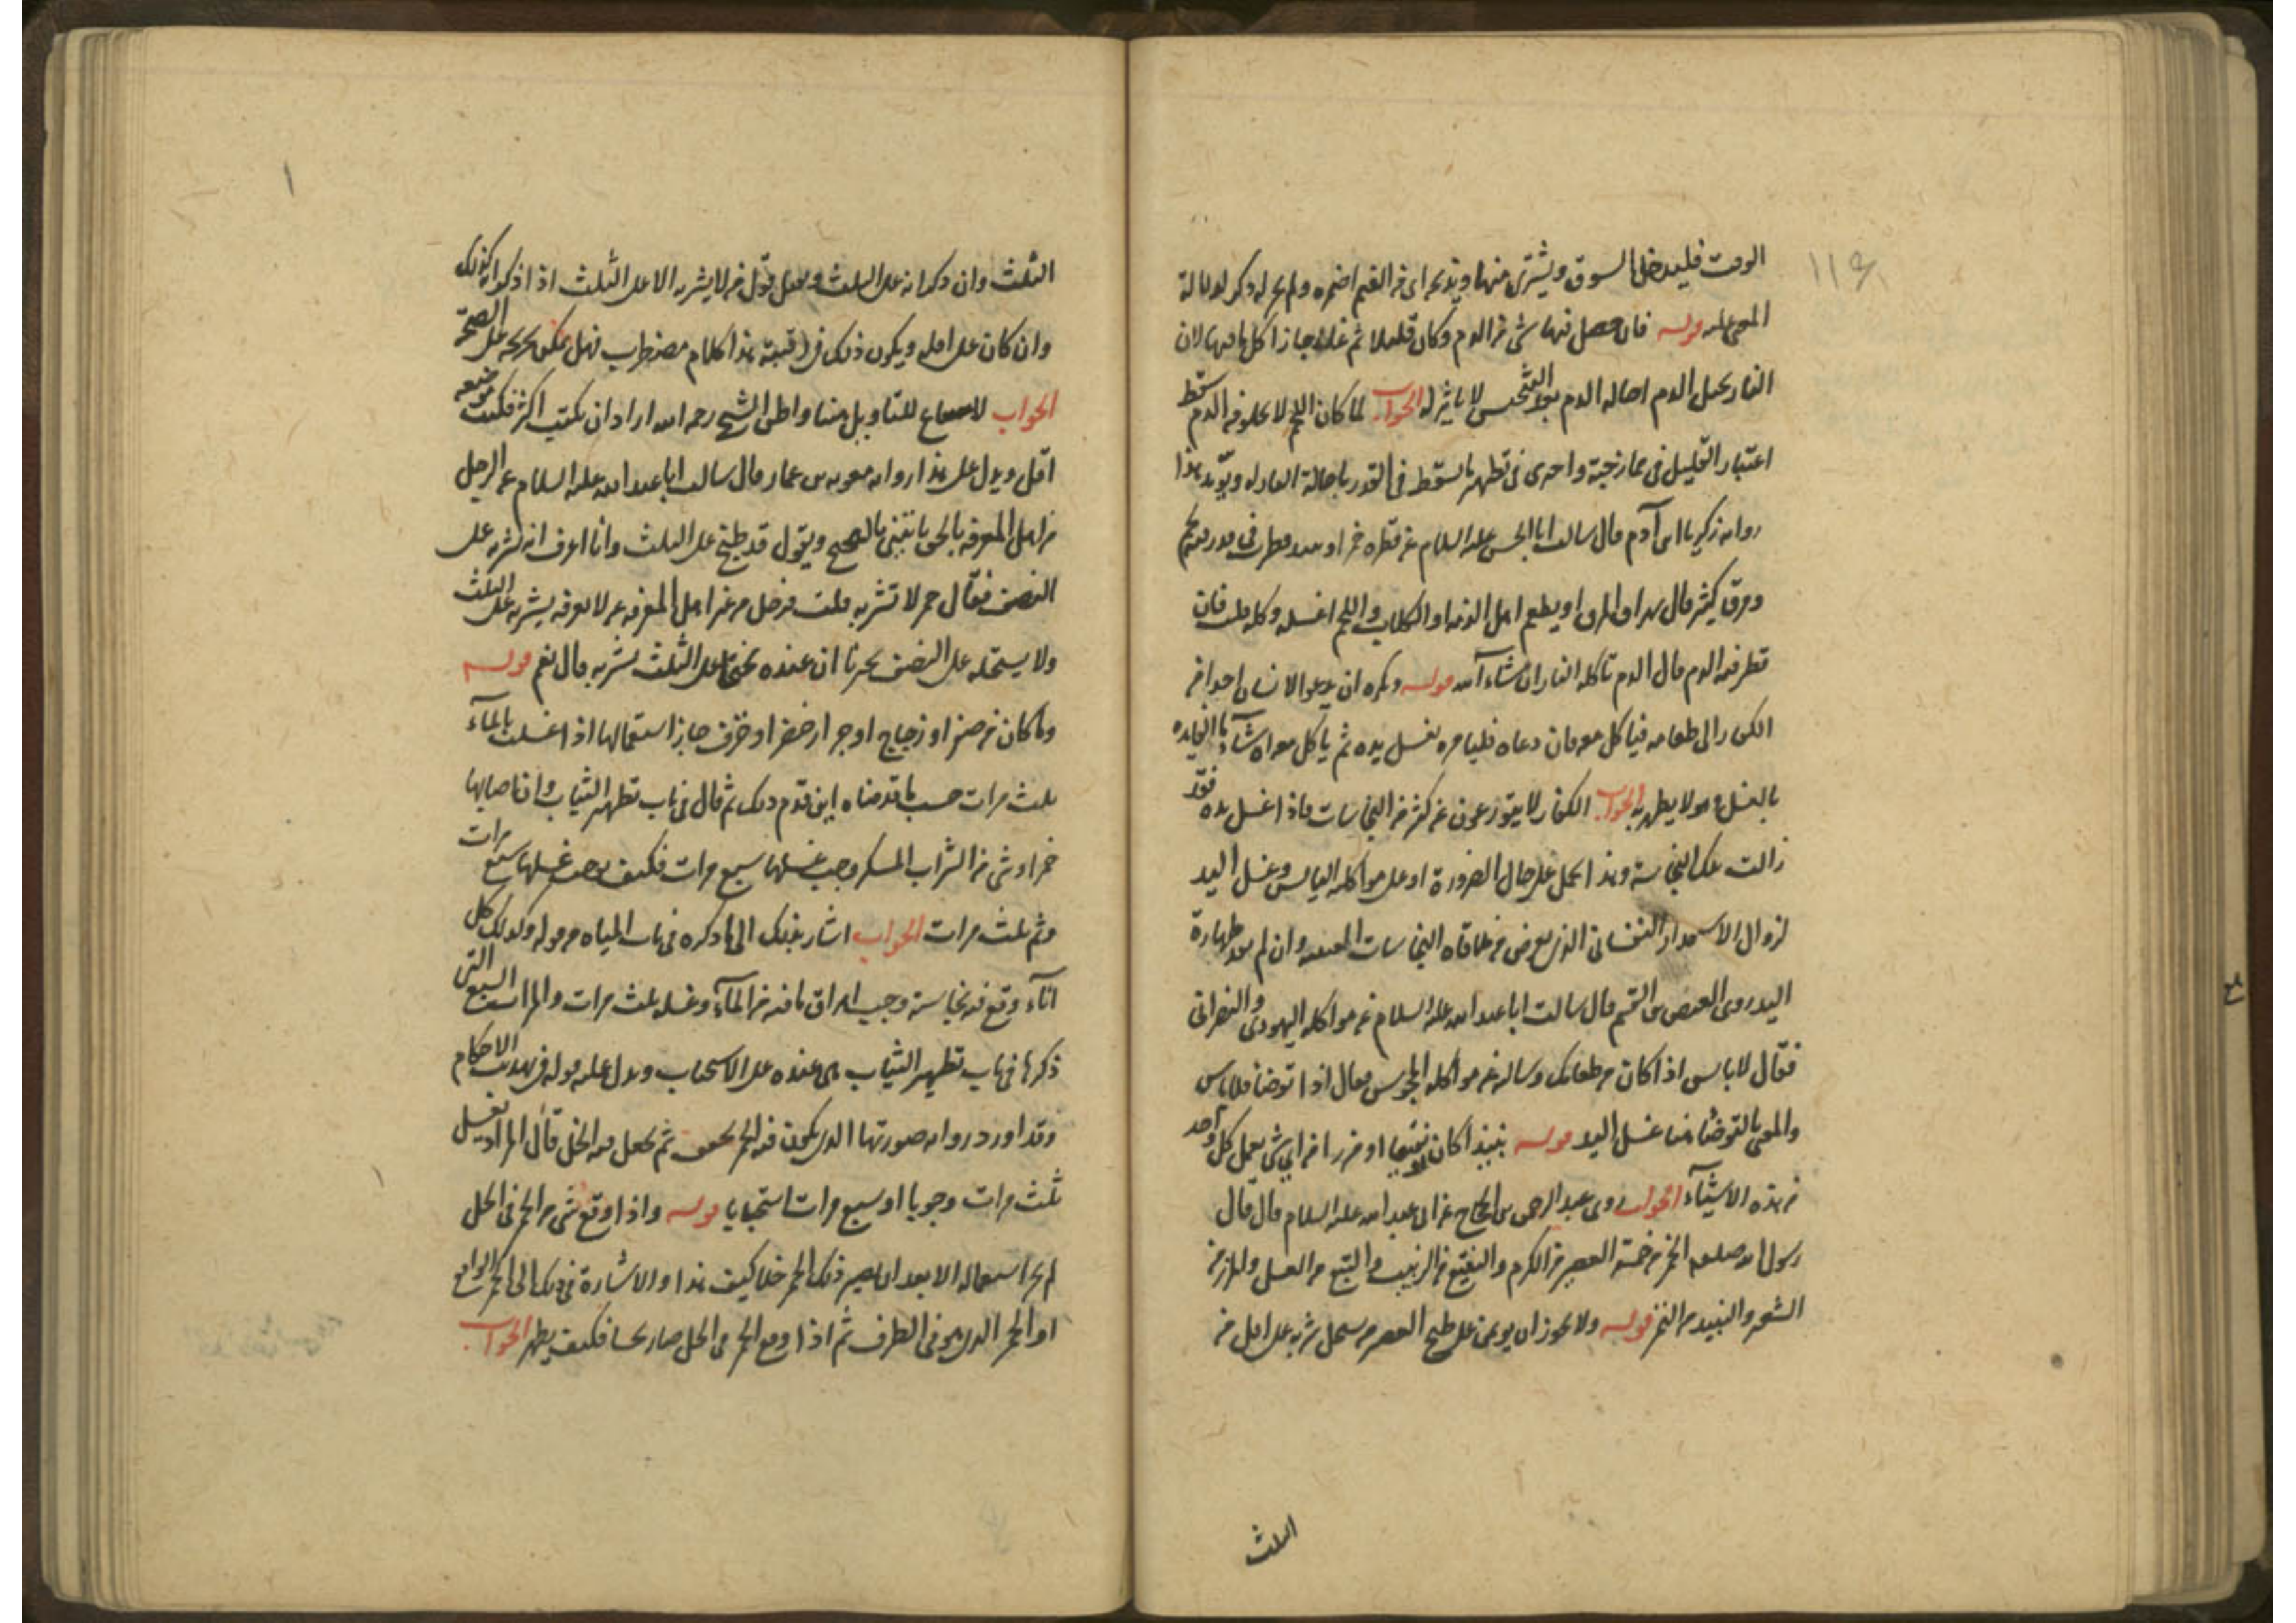 الوقت فليدخل السوق ويشترى منها ويذبحه اى فى القيم اضمره ولم يجر له ذكر لدلالة
المعنى عليه قوله فان حصل فيها شى من الدم وكان قليلا ثم غلا جاز اكل ما فيها لان
النار تحيل الدم احالة الدم بعد التنجيس لا تاثير له الجواب لما كان اللحم لا يخلو من الدم سقط
اعتبار القليل فى ممازجته واحدى فى تطهير ما سقط فى القدر باحالة النار له ويؤيد هذا
رواية زكريا بن آدم قال سالت ابا الحسن عليه السلام عن قطرة خمر او نبيذ قطرت فى قدر فيه لحم
ومرق كثير قال يهراق المرق او يطعم اهل الذمة او الكلاب واللحم اغسله وكله قلت فان
قطر فيه الدم قال الدم تاكله النار ان شاء الله قوله ويكره ان يدعو الانسان احدا من
الكفار الى طعامه فياكل معه فان دعاه فليامره بغسل يده ثم ياكل معه ان شاء ما الفايدة
بالغسل وهو لا يطهر به الجواب الكفار لا يتورعون عن كثير من النجاسات فاذا غسل يده فقد
زالت تلك النجاسة وهذا يحمل على حال الضرورة او على مواكلة اليابس وغسل اليد
لزوال الاستقذار النفسانى الذى يعرض من ملاقاة النجاسات العينية وان لم يفد طهارة
اليد روى العيص بن القسم قال سالت ابا عبد الله عليه السلام عن مواكلة اليهودى والنصرانى
فقال لا باس اذا كان من طعامك وسالته عن مواكلة المجوسى فقال اذا توضأ فلا باس
والمعنى بالتوضأ هنا غسل اليد قوله نبيذا كان او نقيعا او مزرا من اى شى يعمل كل واحد
من هذه الاشياء الجواب روى عبد الرحمن بن الحجاج عن ابى عبد الله عليه السلام قال قال
رسول الله صلعم الخمر من خمسة العصير من الكرم والنقيع من الزبيب والبتع من العسل والمزر من
الشعير والنبيذ من التمر قوله ولا يجوز ان يؤتمن على طبخ العصير من يستحل شربه على اقل من
الثلث
الثلث وان ذكر انه على الثلث ويقبل قول من لا يشربه الا على الثلث اذا ذكر انه كذلك
وان كان على اقله ويكون ذلك فى رقبته هذا كلام مضطرب فهل يمكن تخريجه على الصحة
الجواب لا للتاويل هنا واظن الشيخ رحمه الله اراد ان يكتب اكثر فكتب موضعه
اقل ويدل على هذا رواية معوية بن عمار قال سالت ابا عبد الله عليه السلام عن الرجل
من اهل المعرفة بالحق ياتينى بالبختج ويقول قد طبخ على الثلث وانا اعرف انه يشربه على
النصف فقال خمر لا تشربه قلت فرجل من غير اهل المعرفة ممن لا نعرفه يشربه على الثلث
ولا يستحله على النصف يخبرنا ان عنده بختجا على الثلث نشربه قال نعم قوله
وما كان من صفر او زجاج او جرار خضر او خزف جاز استعمالها اذا غسلت بالماء
ثلث مرات حسب ما قدمناه اين قدم ذلك ثم قال فى باب تطهير الثياب وان اصابها
خمر او شى من الشراب المسكر وجب غسلها سبع مرات فكيف يوجب غسلها سبع مرات
وثم ثلث مرات الجواب اشار بذلك الى ما ذكره فى باب المياه من قوله وكذلك كل
اناء وقع فيه نجاسة وجب اهراق ما فيه من الماء وغسله ثلث مرات والمرات السبع التى
ذكرها فى باب تطهير الثياب هى عنده على الاستحباب ويدل عليه قوله فى تهذيب الاحكام
وقد اورد رواية صورتها الدن يكون فيه الخمر يجفف ثم يجعل فيه الخل قال المراد يغسل
ثلث مرات وجوبا او سبع مرات استحبابا قوله واذا وقع شى من الخمر فى الخل
لم يجز استعماله الا بعد ان يصير ذلك الخمر خلا كيف هذا والاشارة فى ذلك الى الخمر الواقع
او الخمر الذى هو فى الظرف ثم اذا وقع الخمر فى الخل صار نجسا فكيف يطهر الجواب